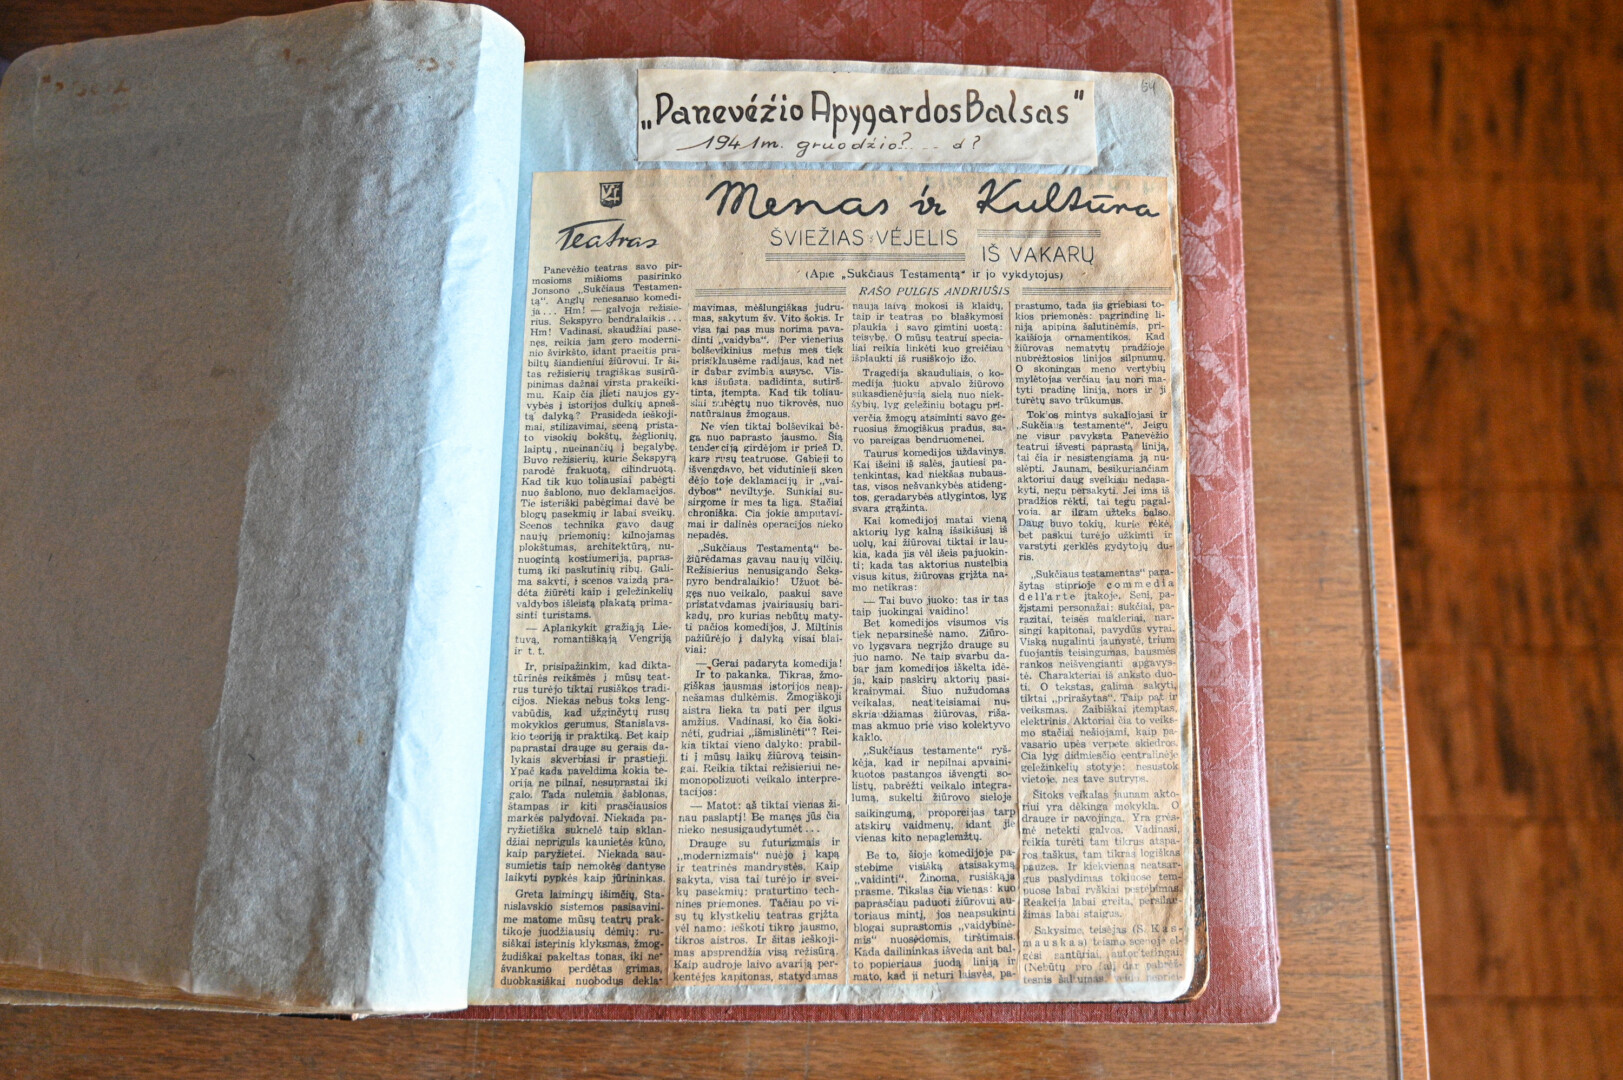 64
„Panevėžio Apygardos Balsas"
1941m. gruodžio?... d?
VT
Menas ir Kultūra
Teatras
ŠVIEŽIAS VĖJELIS
IŠ VAKARŲ
(Apie „Sukčiaus Testamentą" ir jo vykdytojus)
RAŠO PULGIS ANDRIUŠIS
Panevėžio teatras savo pir-
mosioms mišioms pasirinko
Jonsono „Sukčiaus Testamen-
tą". Anglų renesanso komedi-
ja... Hm! — galvoja režisie-
rius. Šekspyro bendralaikis...
Hm! Vadinasi, skaudžiai pase-
nęs, reikia jam gero moderni-
nio švirkšto, idant praeitis pra-
biltų šiandieniui žiūrovui. Ir ši-
tas režisierių tragiškas susirū-
pinimas dažnai virsta prakeiki-
mu. Kaip čia įlieti naujos gy-
vybės į istorijos dulkių apneš-
tą dalyką? Prasideda ieškoji-
mai, stilizavimai, sceną prista-
to visokių bokštų, žėglionių,
laiptų, nueinančių į begalybę.
Buvo režisierių, kurie Šekspyrą
parodė frakuotą, cilindruotą.
Kad tik kuo toliausiai pabėgti
nuo šablono, nuo deklamacijos.
Tie isteriški pabėgimai davė be
blogų pasekmių ir labai sveikų.
Scenos technika gavo daug
naujų priemonių: kilnojamas
plokštumas, architektūrą, nu-
nuogintą kostiumeriją, papras-
tumą iki paskutinių ribų. Gali-
ma sakyti, į scenos vaizdą pra-
dėta žiūrėti kaip į geležinkelių
valdybos išleistą plakatą prima-
sinti turistams.
— Aplankykit gražiąją Lie-
tuvą, romantiškąją Vengriją
ir t. t.
Ir, prisipažinkim, kad dikta-
tūrinės reikšmės į mūsų teat-
rus turėjo tiktai rusiškos tradi-
cijos. Niekas nebus toks leng-
vabūdis, kad užginčytų rusų
mokyklos gerumus, Stanislavs-
kio teoriją ir praktiką. Bet kaip
paprastai drauge su gerais da-
lykais skverbiasi ir prastieji.
Ypač kada paveldima kokia te-
orija ne pilnai, nesuprastai iki
galo. Tada nulemia šablonas,
štampas ir kiti prasčiausios
markės palydovai. Niekada pa-
ryžietiška suknelė taip sklan-
džiai nepriguls kaunietės kūno,
kaip paryžietei. Niekada sau-
sumietis taip nemokės dantyse
laikyti pypkės kaip jūrininkas.
Greta laimingų išimčių, Sta-
nislavskio sistemos pasisavini-
me matome mūsų teatrų prak-
tikoje juodžiausių dėmių: ru-
siškai isterinis klyksmas, žmog-
žudiškai pakeltas tonas, iki ne-
švankumo perdėtas grimas,
duobkasiškai nuobodus dekla-
mavimas, mėšlungiškas judru-
mas, sakytum šv. Vito šokis. Ir
visa tai pas mus norima pava-
dinti „vaidyba". Per vienerius
bolševikinius metus mes tiek
prisiklausėme radijaus, kad net
ir dabar zvimbia ausyse. Vis-
kas išpūsta, padidinta, sutirš-
tinta, įtempta. Kad tik toliau-
siai nubėgtų nuo tikrovės, nuo
natūralaus žmogaus.
Ne vien tiktai bolševikai bė-
ga nuo paprasto jausmo. Šią
tendenciją girdėjom ir prieš D.
karą rusų teatruose. Gabieji to
išvengdavo, bet vidutinieji sken
dėjo toje deklamacijų ir „vai-
dybos" neviltyje. Sunkiai su-
sirgome ir mes ta liga. Stačiai
chroniška. Čia jokie amputavi-
mai ir dalinės operacijos nieko
nepadės.
„Sukčiaus Testamentą" be-
žiūrėdamas gavau naujų vilčių.
Režisierius nenusigando Šeks-
pyro bendralaikio! Užuot bė-
gęs nuo veikalo, paskui save
pristatydamas įvairiausių bari-
kadų, pro kurias nebūtų maty-
ti pačios komedijos, J. Miltinis
pažiūrėjo į dalyką visai blai-
viai:
— Gerai padaryta komedija!
Ir to pakanka. Tikras, žmo-
giškas jausmas istorijos neap-
nešamas dulkėmis. Žmogiškoji
aistra lieka ta pati per ilgus
amžius. Vadinasi, ko čia šoki-
nėti, gudriai „išmislinėti"? Rei-
kia tiktai vieno dalyko: prabil-
ti į mūsų laikų žiūrovą teisin-
gai. Reikia tiktai režisieriui ne-
monopolizuoti veikalo interpre-
tacijos:
— Matot: aš tiktai vienas ži-
nau paslaptį! Be manęs jūs čia
nieko nesusigaudytumėt...
Drauge su futurizmais ir
„modernizmais" nuėjo į kapą
ir teatrinės mandrystės. Kaip
sakyta, visa tai turėjo ir svei-
kų pasekmių: praturtino tech-
nines priemones. Tačiau po vi-
sų tų klystkelių teatras grįžta
vėl namo: ieškoti tikro jausmo,
tikros aistros. Ir šitas ieškoji-
mas apsprendžia visą režisūrą.
Kaip audroje laivo avariją per-
kentėjęs kapitonas, statydamas
naują laivą mokosi iš klaidų,
taip ir teatras po blaškymosi
plaukia į savo gimtinį uostą:
teisybę. O mūsų teatrui specia-
liai reikia linkėti kuo greičiau
išplaukti iš rusiškojo ižo.
Tragedija skauduliais, o ko-
medija juoku apvalo žiūrovo
sukasdienėjusią sielą nuo niek-
šybių, lyg geležiniu botagu pri-
verčia žmogų atsiminti savo ge-
ruosius žmogiškus pradus, sa-
vo pareigas bendruomenei.
Taurus komedijos uždavinys.
Kai išeini iš salės, jautiesi pa-
tenkintas, kad niekšas nubaus-
tas, visos nešvankybės atideng-
tos, geradarybės atlygintos, lyg
svara grąžinta.
Kai komedijoj matai vieną
aktorių lyg kalną išsikišusį iš
uolų, kai žiūrovai tiktai ir lau-
kia, kada jis vėl išeis pajuokin-
ti; kada tas aktorius nustelbia
visus kitus, žiūrovas grįžta na-
mo netikras:
— Tai buvo juoko: tas ir tas
taip juokingai vaidino!
Bet komedijos visumos vis
tiek neparsinešė namo. Žiūro-
vo lygsvara negrįžo drauge su
juo namo. Ne taip svarbu da-
bar jam komedijos iškelta idė-
ja, kaip paskirų aktorių pasi-
kraipymai. Šiuo nužudomas
veikalas, neatiteisiamai nu-
skriaudžiamas žiūrovas, riša-
mas akmuo prie viso kolektyvo
kaklo.
„Sukčiaus testamente" ryš-
kėja, kad ir nepilnai apvaini-
kuotos pastangos išvengti so-
listų, pabrėžti veikalo integra-
lumą, sukelti žiūrovo sieloje
saikingumą, proporcijas tarp
atskirų vaidmenų, idant jie
vienas kito nepaglemžtų.
Be to, šioje komedijoje pa-
stebime visišką atsisakymą
„vaidinti". Žinoma, rusiškąja
prasme. Tikslas čia vienas: kuo
paprasčiau paduoti žiūrovui au-
toriaus mintį, jos neapsukinti
blogai suprastomis „vaidybinė-
mis" nuosėdomis, tirštimais.
Kada dailininkas išveda ant bal-
to popieriaus juodą liniją ir
mato, kad ji neturi laisvės, pa-
prastumo, tada jis griebiasi to-
kios priemonės: pagrindinę li-
niją apipina šalutinėmis, pri-
kaišioja ornamentikos. Kad
žiūrovas nematytų pradžioje
nubrėžtosios linijos silpnumų.
O skoningas meno vertybių
mylėtojas verčiau jau nori ma-
tyti pradinę liniją, nors ir ji
turėtų savo trūkumus.
Tokios mintys sukaliojasi ir
„Sukčiaus testamente". Jeigu
ne visur pavyksta Panevėžio
teatrui išvesti paprastą liniją,
tai čia ir nesistengiama ją nu-
slėpti. Jaunam, besikuriančiam
aktoriui daug sveikiau nedasa-
kyti, negu persakyti. Jei ims iš
pradžios rėkti, tai tegu pagal-
voja, ar ilgam užteks balso.
Daug buvo tokių, kurie rėkė,
bet paskui turėjo užkimti ir
varstyti gerklės gydytojų du-
ris.
„Sukčiaus testamentas" para-
šytas stiprioje commedia
dell'arte įtakoje. Seni, pa-
žįstami personažai: sukčiai, pa-
razitai, teisės makleriai, nar-
singi kapitonai, pavydūs vyrai.
Viską nugalinti jaunystė, trium
fuojantis teisingumas, bausmės
rankos neišvengianti apgavys-
tė. Charakteriai iš anksto duo-
ti. O tekstas, galima sakyti,
tiktai „prirašytas". Taip pat ir
veiksmas. Žaibiškai įtemptas,
elektrinis. Aktoriai čia to veiks-
mo stačiai nešiojami, kaip pa-
vasario upės verpete skiedros.
Čia lyg didmiesčio centralinėj
geležinkelių stotyje: nesustok
vietoje, nes tave sutryps.
Šitoks veikalas jaunam akto-
riui yra dėkinga mokykla. O
drauge ir pavojinga. Yra grės-
mė netekti galvos. Vadinasi,
reikia turėti tam tikrus atspa-
ros taškus, tam tikras logiškas
pauzes. Ir kiekvienas neatsar-
gus paslydimas tokiuose tem-
puose labai ryškiai pastebimas.
Reakcija labai greita, persilau-
žimas labai staigus.
Sakysime, teisėjas (S. Kas-
mauskas) teismo scenoje el-
gėsi santūriai, autoritetingai.
(Nebūtų pro šalį dar